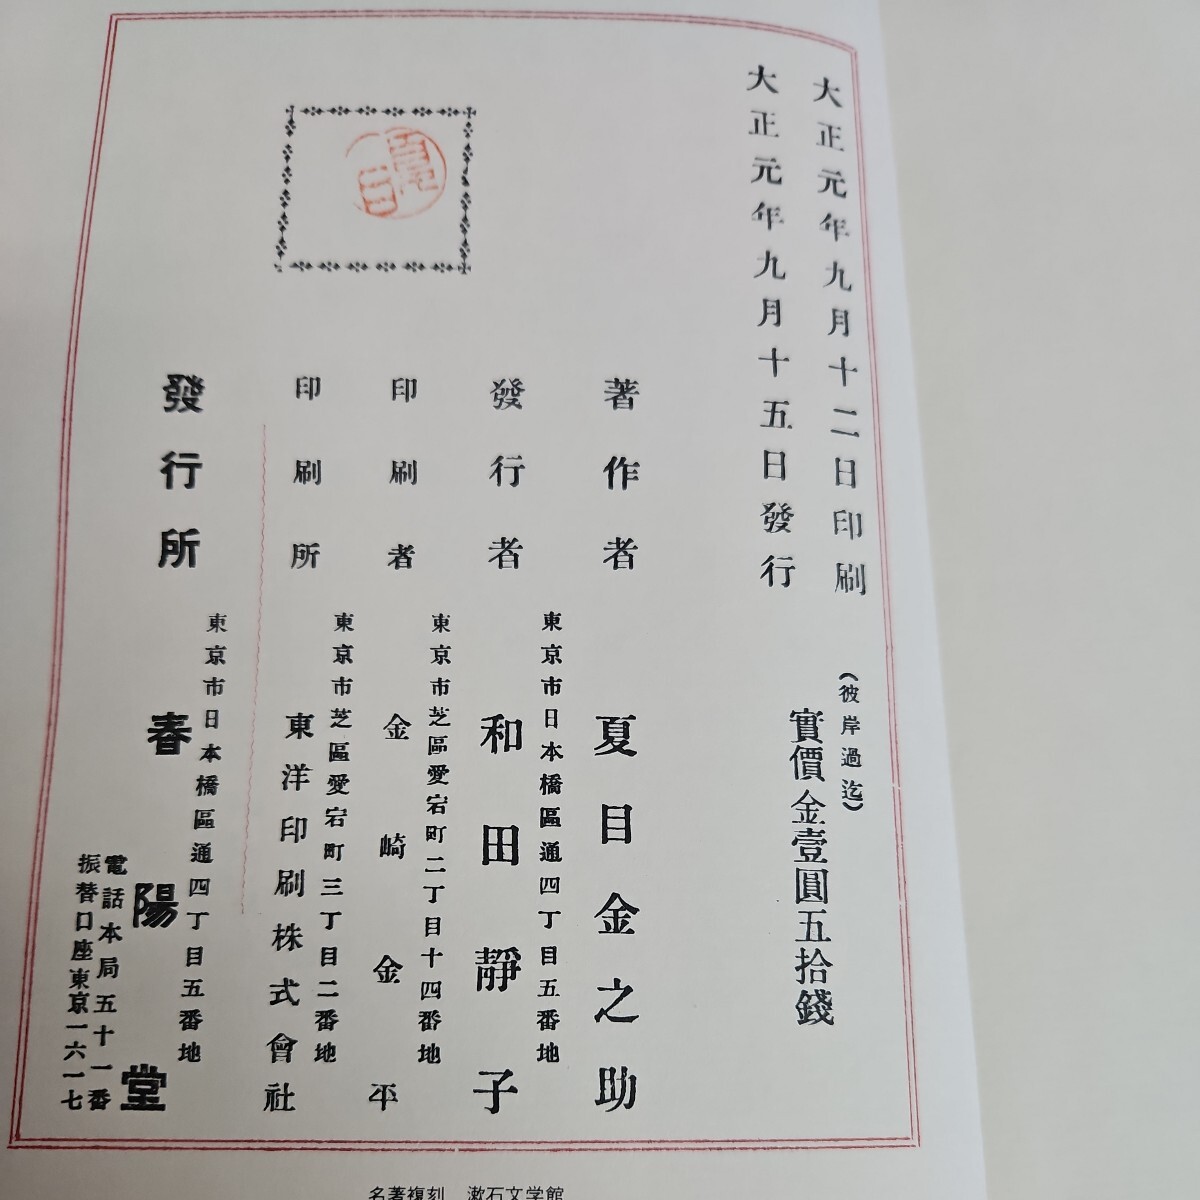 大正元年九月十二日印刷
大正元年九月十五日發行
(彼岸過迄)
實價金壹圓五拾錢
著作者 夏目金之助
東京市日本橋區通四丁目五番地
發行者 和田靜子
東京市芝區愛宕町二丁目十四番地
印刷者 金崎金平
東京市芝區愛宕町三丁目二番地
印刷所 東洋印刷株式會社
東京市日本橋區通四丁目五番地
發行所 春陽堂
電話本局五十一番
振替口座東京一六一七
名著複刻 漱石文学館